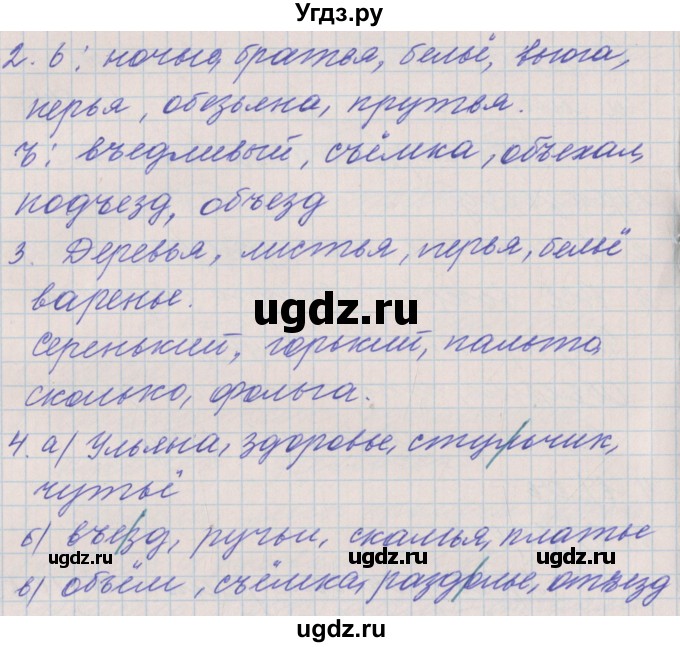 Угдз.ру
2. ь: ночью, братья, бельё, вьюга,
перья, обезьяна, прутья.
ъ: въедливый, съёмка, объехал,
подъезд, объезд
3. Деревья, листья, перья, бельё
варенье.
ugdz.ru
Серенький, горький, пальто,
сколько, фольга.
4. а) Ульяна, здоровье, стульчик,
чутьё
б) въезд, ручьи, скамья, платье
ugdz.ru ugdz.ru
в) объём, съёмка, раздолье, отъезд
ugdz.ru